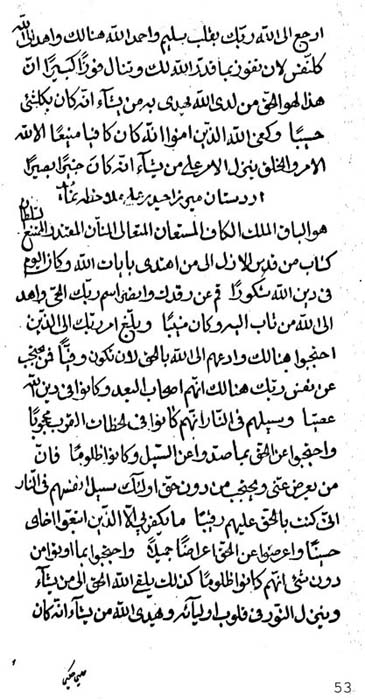 ارجع الى الله ربك بقلب سليم واحمد الله هنالك واهد الى الله
كل نفس لان تفوز بما قدر الله لك وتنال فوزًا كبيرًا ان
هذا لهو الحق من لدى الله يهدى به من يشآء انه كان بكلشئ
حسيبًا وكفى الله الذين امنوا انه كان كافيا منيعًا الا لله
الامر والخلق ينزل الامر على من يشآء انه كان خبيرًا بصيرًا
اردستان ميرزا حيدر على ملاحظه
هو الباقى الملك الكافى المستعان المتعالى المنان المقتدر الممتنع السلطان
كتاب من فدين لازل الى من اهتدى بايات الله وكان اليوم
فى دين الله شكورًا قم عن رقدك وايضى اسم ربك الحق واهد
الى الله من تاب اليه وكان منيبًا وبلغ امر ربك الى الذين
احتجبوا هنالك وادعهم الى الله بالحق لان تكون وفيًا فمن يحتجب
عن نفس ربك هنالك انهم اصحاب البعد وكانوا فى دين الله
عصيا وسبيلهم فى النار انهم كانوا فى لحظات القرب محجوبًا
واحتجبوا عن الحق بما صدوا عن السبيل وكانوا ظلومًا فان
من يعرض عنى ويحتجب من دون حق اولئك سبيل انفسهم فى النار
انى كنت بالحق عليهم رقيبًا ما يكفر بى الا الذين اتبعوا اخاى
حسينًا واعرضوا عن الحق اعراضًا جميلًا واحتجبوا بما اوتوا من
دون شئ انهم كانوا ظلومًا كذلك يلقى الله الحق الى من يشآء
وينزل النور فى قلوب اوليآئه ويهدى الله من يشآء انه كان
53